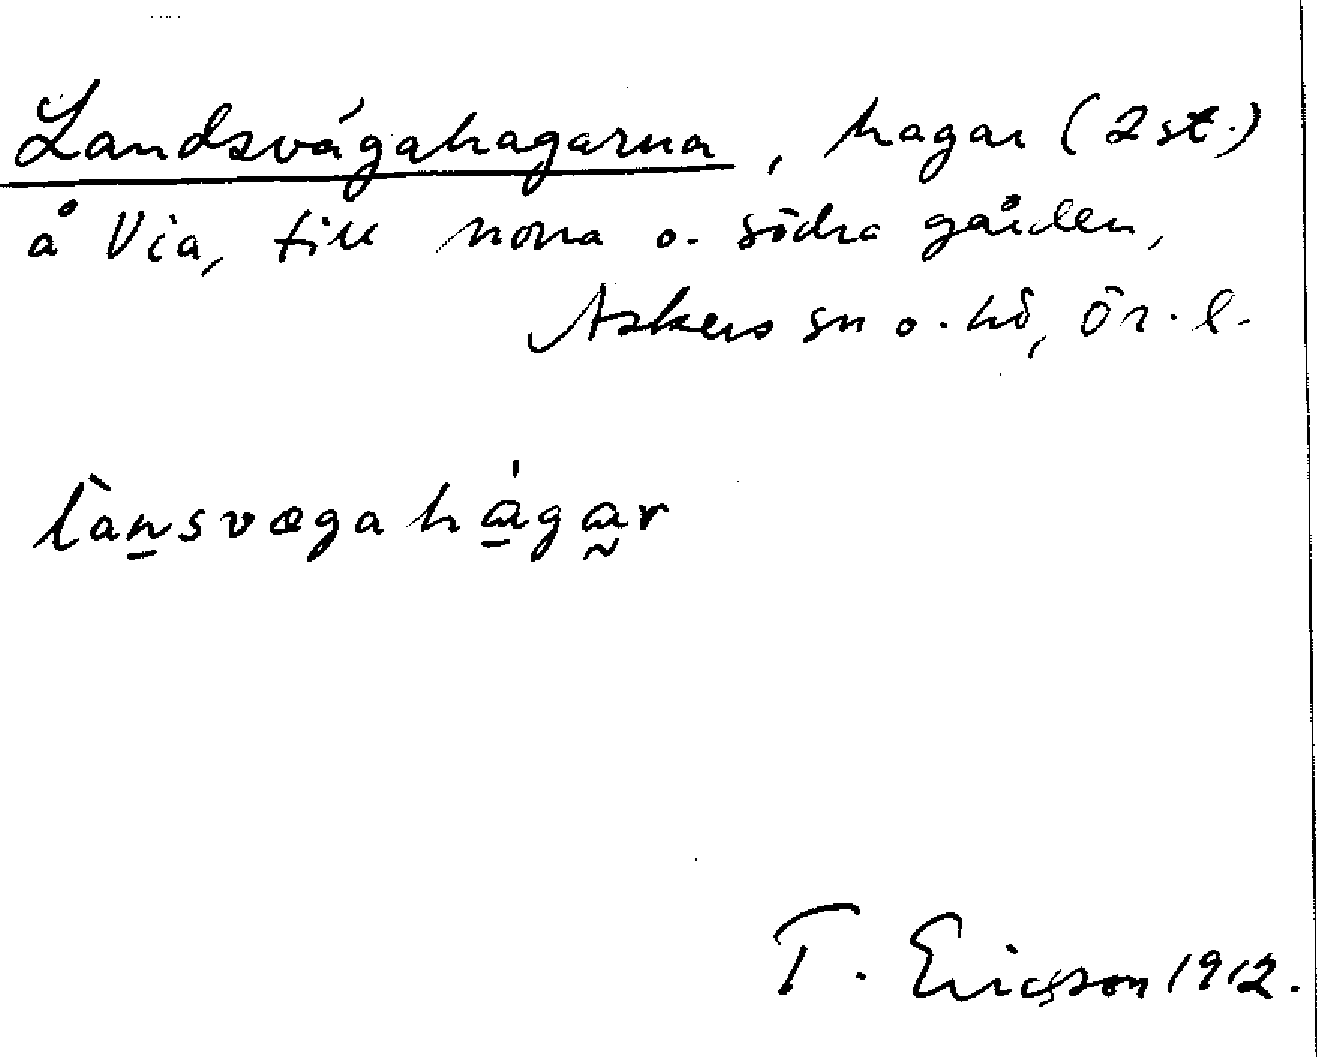 Landsvägahagarna, hagar (2 st.)
å Via, till norra o. södra gården,
Askers sn o. hd, Ör. l.
la̠nsvægaha̠ga̰r
T. Ericson 1912.